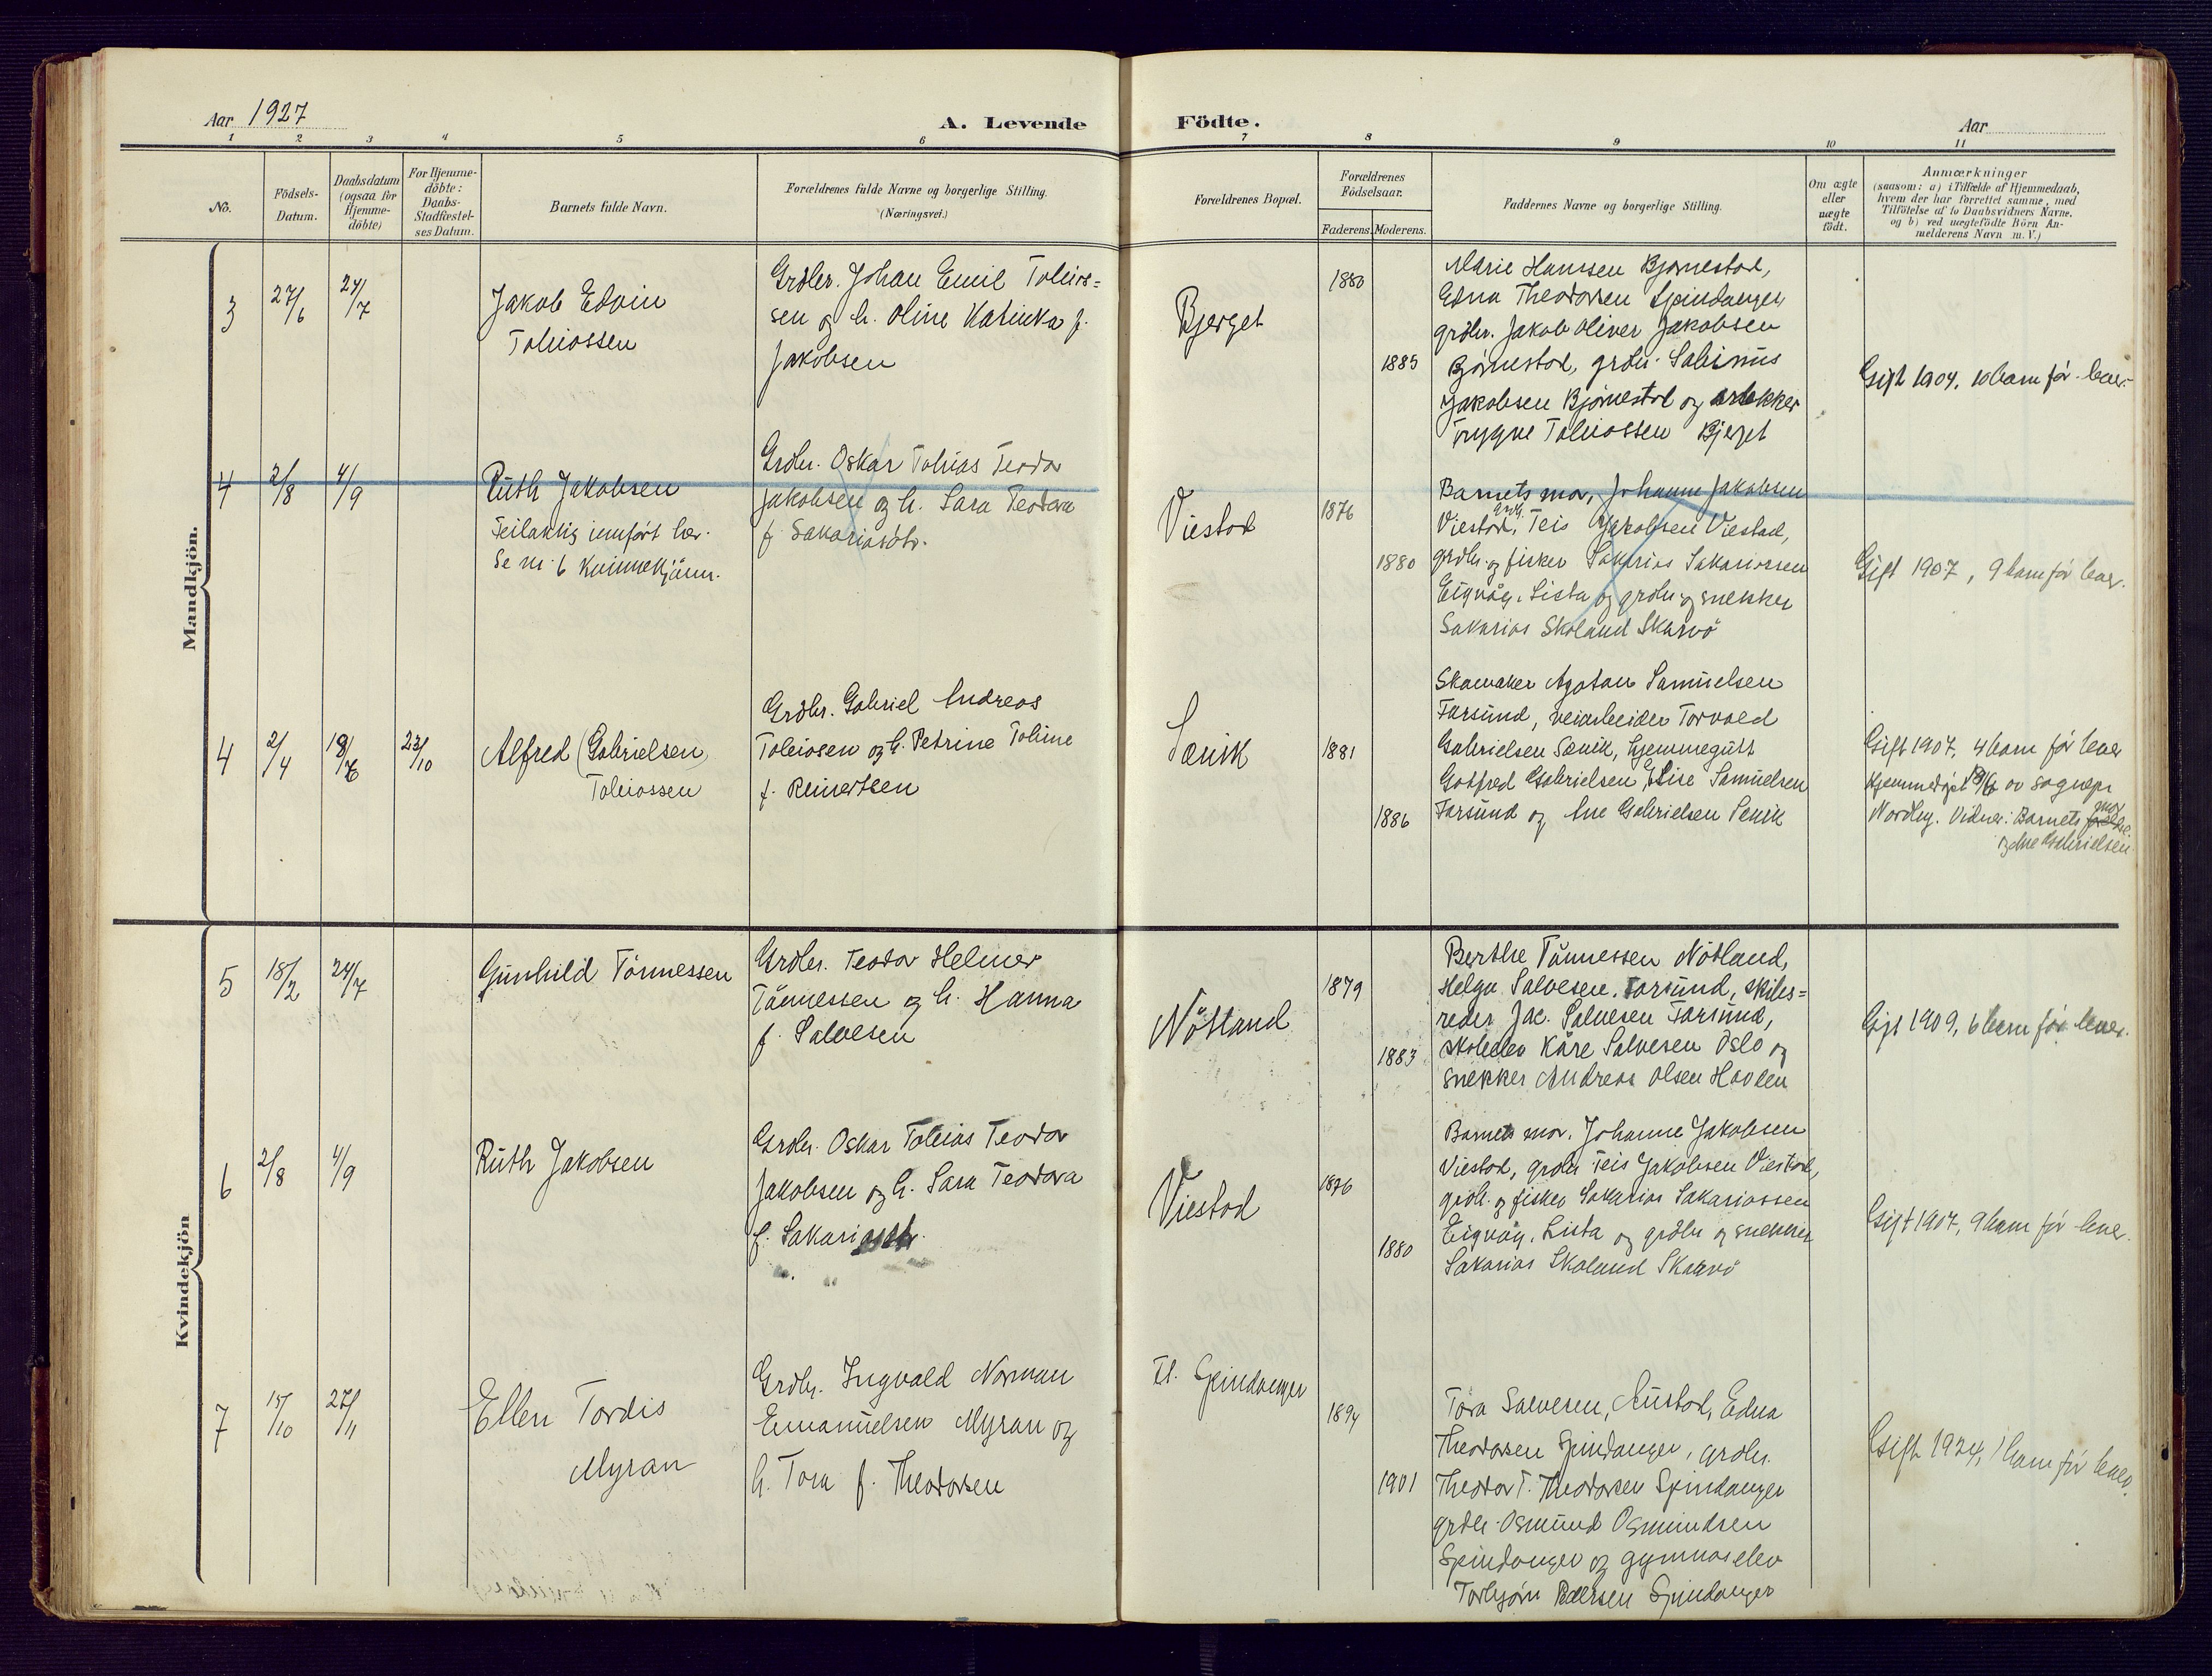 Aar 1927
A. Levende
Födte.
Aar
1 2 3 4 5 6 7 8 9 10 11
No.
Födsels-
Datum.
Daabsdatum
(ogsaa for
Hjemme-
döbte)
For Hjemme-
döbte:
Daabs-
Stadfæstel-
ses Datum.
Barnets fulde Navn.
Forældrenes fulde Navne og borgerlige Stilling.
(Næringsvei.)
Forældrenes Bopæl.
Forældrenes
Födselsaar.
Faderens. Moderens.
Faddernes Navne og borgerlige Stilling.
Om ægte
eller
uægte
födt.
Anmærkninger
(saasom: a) i Tilfælde af Hjemmedaab,
hvem der har forrettet samme, med
Tilföielse af to Daabsvidners Navne,
og b) ved uægtefödte Börn An-
melderens Navn m. V.)
Mandkjön.
3
27/6
24/7
Jakob Edvin
Tobiassen
Grdbr. Johan Emil Tobias=
sen og h. Oline Katinka f.
Jakobsen
Bjerget
1880
1885
Marie Hansen Bjørnestad,
Edna Theodorsen Spindanger,
grdbr. Jakob Oliver Jakobsen
Bjørnestad, grdbr. Salinius
Jakobsen Bjørnestad og
Trygve Tobiassen Bjerget
Gift 1904, 10 barn før lever.
4
2/8
4/9
Ruth Jakobsen
Feilaktig innført her.
Se nr. 6 Kvinnekjønn.
Grdbr. Oskar Tobias Teodor
Jakobsen og h. Sara Teodora
f. Sakariasdtr.
Viestad
1876
1880
Barnets mor, Johanne Jakobsen
Viestad, grdb. Teis Jakobsen Viestad,
grdbr. og fisker Sakarias Sakariassen
Eigvåg, Lista og grdbr og snekker
Sakarias Skoland Skarvø
Gift 1907, 9 barn før lever.
4
2/4
19/6
23/10
Alfred (Gabrielsen)
Tobiassen
Grdbr. Gabriel Andreas
Tobiasen og h. Petrine Toline
f. Reinertsen
Sævik
1881
1886
Skomaker Agatan Samuelsen
Farsund, veiarbeider Torvald
Gabrielsen Sævik, hjemmegutt
Gotfred Gabrielsen, Elise Samuelsen
Farsund og Ane Gabrielsen Sevik
Gift 1907, 4 barn før lever
Hjemmedøpt 19/6 av sognepr
Nordby. Vidner: Barnets mor
og Ane Gabrielsen.
Kvindekjön
5
18/2
24/7
Gunhild Tønnessen
Grdbr. Teodor Helmer
Tønnessen og h. Hanna
f. Salvesen
Nøtland
1879
1883
Berthe Tønnessen Nøtland,
Helga Salvesen, Farsund, skibs=
reder Jac. Salvesen Farsund,
skoleelev Kåre Salvesen Oslo og
snekker Andreas Olsen Havlen
Gift 1909, 6 barn før lever.
6
2/8
4/9
Ruth Jakobsen
Grdbr. Oskar Tobias Teodor
Jakobsen og h. Sara Teodora
f. Sakariasdtr.
Viestad
1876
1880
Barnets mor, Johanne Jakobsen
Viestad, grdbr Teis Jakobsen Viestad,
grdb. og fisker Sakarias Sakariassen
Eigvåg, Lista og grdbr og snekker
Sakarias Skoland Skarvø
Gift 1907, 9 barn før lever.
7
15/10
27/11
Ellen Tordis
Myran
Grdbr. Ingvald Norman
Emanuelsen Myran og
h. Tora f. Theodorsen
Spindanger
1894
1901
Tora Salvesen, Austad, Edna
Theodorsen Spindanger, grdbr.
Theodor T. Theodorsen Spindanger
grdbr. Osmund Osmundsen
Spindanger og gymnaselev
Torbjørn Pedersen Spindanger
Gift 1924, 1 barn før lever.